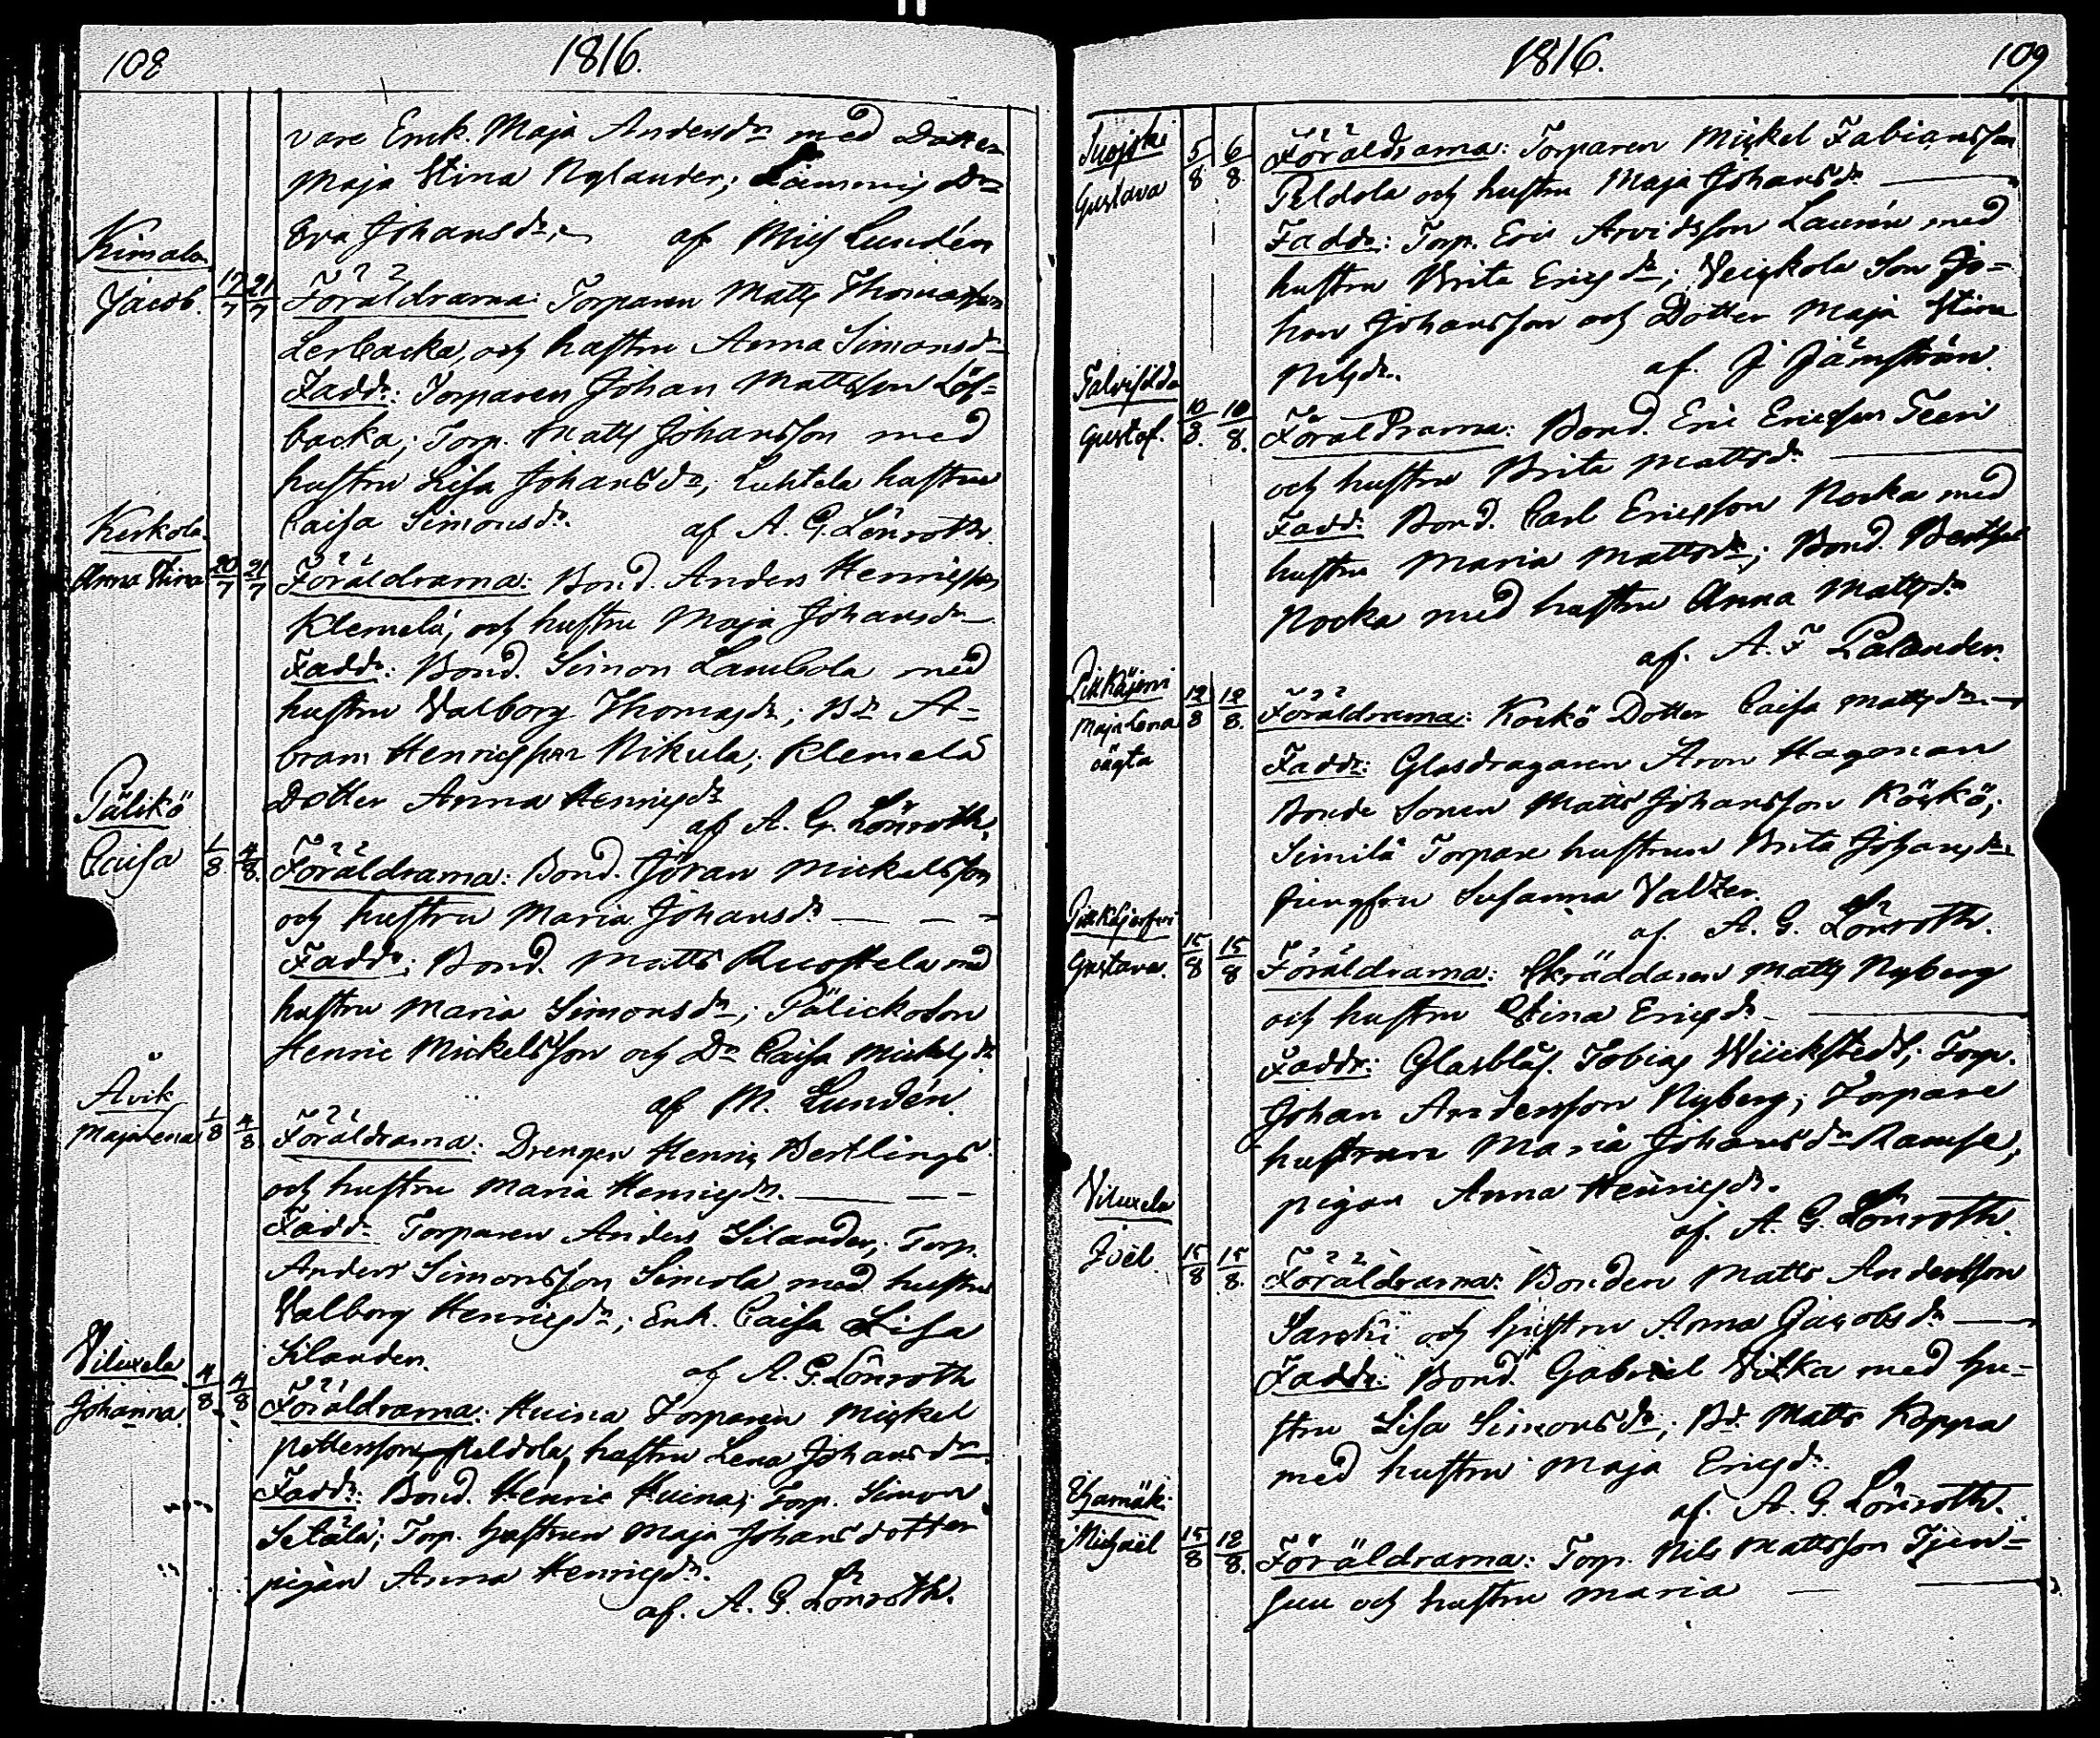 108
1816.
vare Enk. Maja Andersdr med Dotter
Maja Stina Nylander; Lammis Dr
Eva Johansdr, af Mils Lundén
Kimala
Jacob. 17/7 21/7 Föräldrarna: Torparen Matts Thomasson
Lerbacka, och hustru Anna Simonsdr
Faddr: Torparen Johan Mattsson Löf=
backa; Torp. Matts Johansson med
hustru Lisa Johansdr, Luhtela hustru
Caisa Simonsdr. af A. G. Lönroth.
Kerkola.
Anna Stina 20/7 21/7 Föräldrarna: Bond. Anders Henricsson
Klemelä, och hustru Maja Johansdr
Faddr: Bond. Simon Lambola med
hustru Walborg Thomasdr; Bd A=
bram Henricsson Nikula; Klemelä
Dotter Anna Henricsdr
af A. G. Lönroth.
Pälikö
Caisa 1/8 4/8. Föräldrarna: Bond. Jöran Mickelsson
och hustru Maria Johansdr
Faddr: Bond. Matts Ruostela med
hustru Maria Simonsdr; Pälickoson
Henric Mickelsson och Dr Caisa Mickelsdr
af M. Lundén.
Åvik
Maja Lena 1/8 4/8. Föräldrarna: Drengen Henric Bertlings
och hustru Maria Henricsdr.
Faddr Torparen Anders Silander; Torp.
Anders Simonsson Simola med hustru
Valborg Henricsdr; Enk. Caisa Lisa
Silander. af A. G. Lönroth
Viluxela
Johanna. 4/8. 4/8 Föräldrarna: Huina Torparen Mickel
Pettersson Peldola, hustru Lena Johansdr.
Faddr: Bond. Henric Huina; Torp. Simon
Setälä; Torp. hustrun Maja Johansdotter
pigan Anna Henricsdr.
af. A. G. Lönroth.
1816.
109
Suojoki
Gustava 5/8 6/8 Föräldrarna: Torparen Mickel Fabiansson
Peldola och hustru Maja Johansdr
Faddr: Torp. Eric Arvidsson Laurén med
hustru Brita Ericsdr; Veickola Son Jo=
han Johansson och Dotter Maja Stina
Nilsdr. af. J Järnström.
Talvisilda
Gustaf. 10/8. 10/8. Föräldrarna: Bond. Eric Ericsson Teeri
och hustru Brita Mattsdr
Faddr Bond. Carl Ericsson Nocka med
hustru Maria Mattsdr; Bond. Bertil
Nocka med hustru Anna Mattsdr
af. A. F Palander.
Pitkäjervi
Maja Lena
oägta 12/8 12/8. Föräldrarna: Korkö Dotter Caisa Mattsdr.
Faddr: Glasdragaren Aron Hagman
Bonde Sonen Matts Johansson Köykö;
Simila Torpare hustrun Brita Johansdr
Jungfru Susanna Valzer.
af. A. G. Lönroth.
Pitkäjerfvi
Gustava. 15/8 15/8 Föräldrarna: Skräddaren Matts Nyberg
och hustru Stina Ericsdr
Faddr: Glasblås. Tobias Wiickstedt; Torp.
Johan Andersson Nyberg; Torpare
hustrun Maria Johansdr Ramse;
pigan Anna Henricsdr.
af. A. G. Lönroth.
Viluxela
Joël. 15/8 15/8. Föräldrarna: Bonden Matts Andersson
Sarcki och hustru Anna Jacobsdr
Faddr: Bond. Gabriel Vitka med hu=
stru Lisa Simonsdr; Bd. Matts Koppa
med hustru Maja Ericsdr.
af. A. G. Lönroth.
Michaël 15/8 12/8. Föräldrarna: Torp. Nils Mattsson Tjen=
suu och hustru Maria